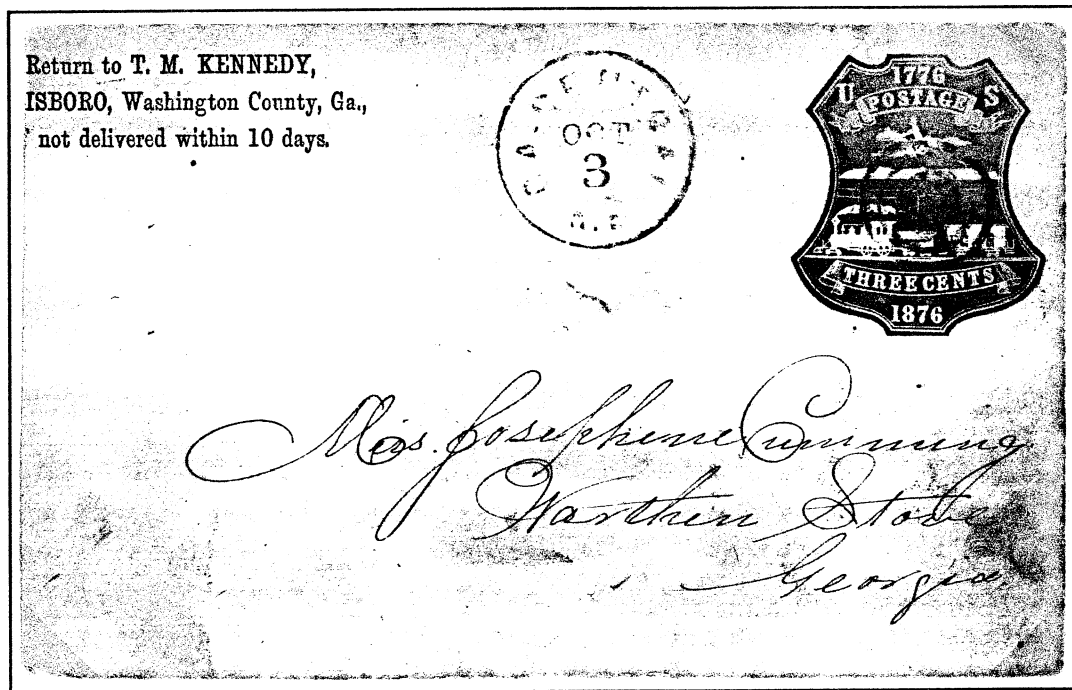 Return to T. M. KENNEDY,
ISBORO, Washington County, Ga.,
not delivered within 10 days.
OCT
3
1776
U S
POSTAGE
THREE CENTS
1876
Miss. Josephine Cumming
Warthen Store
Georgia